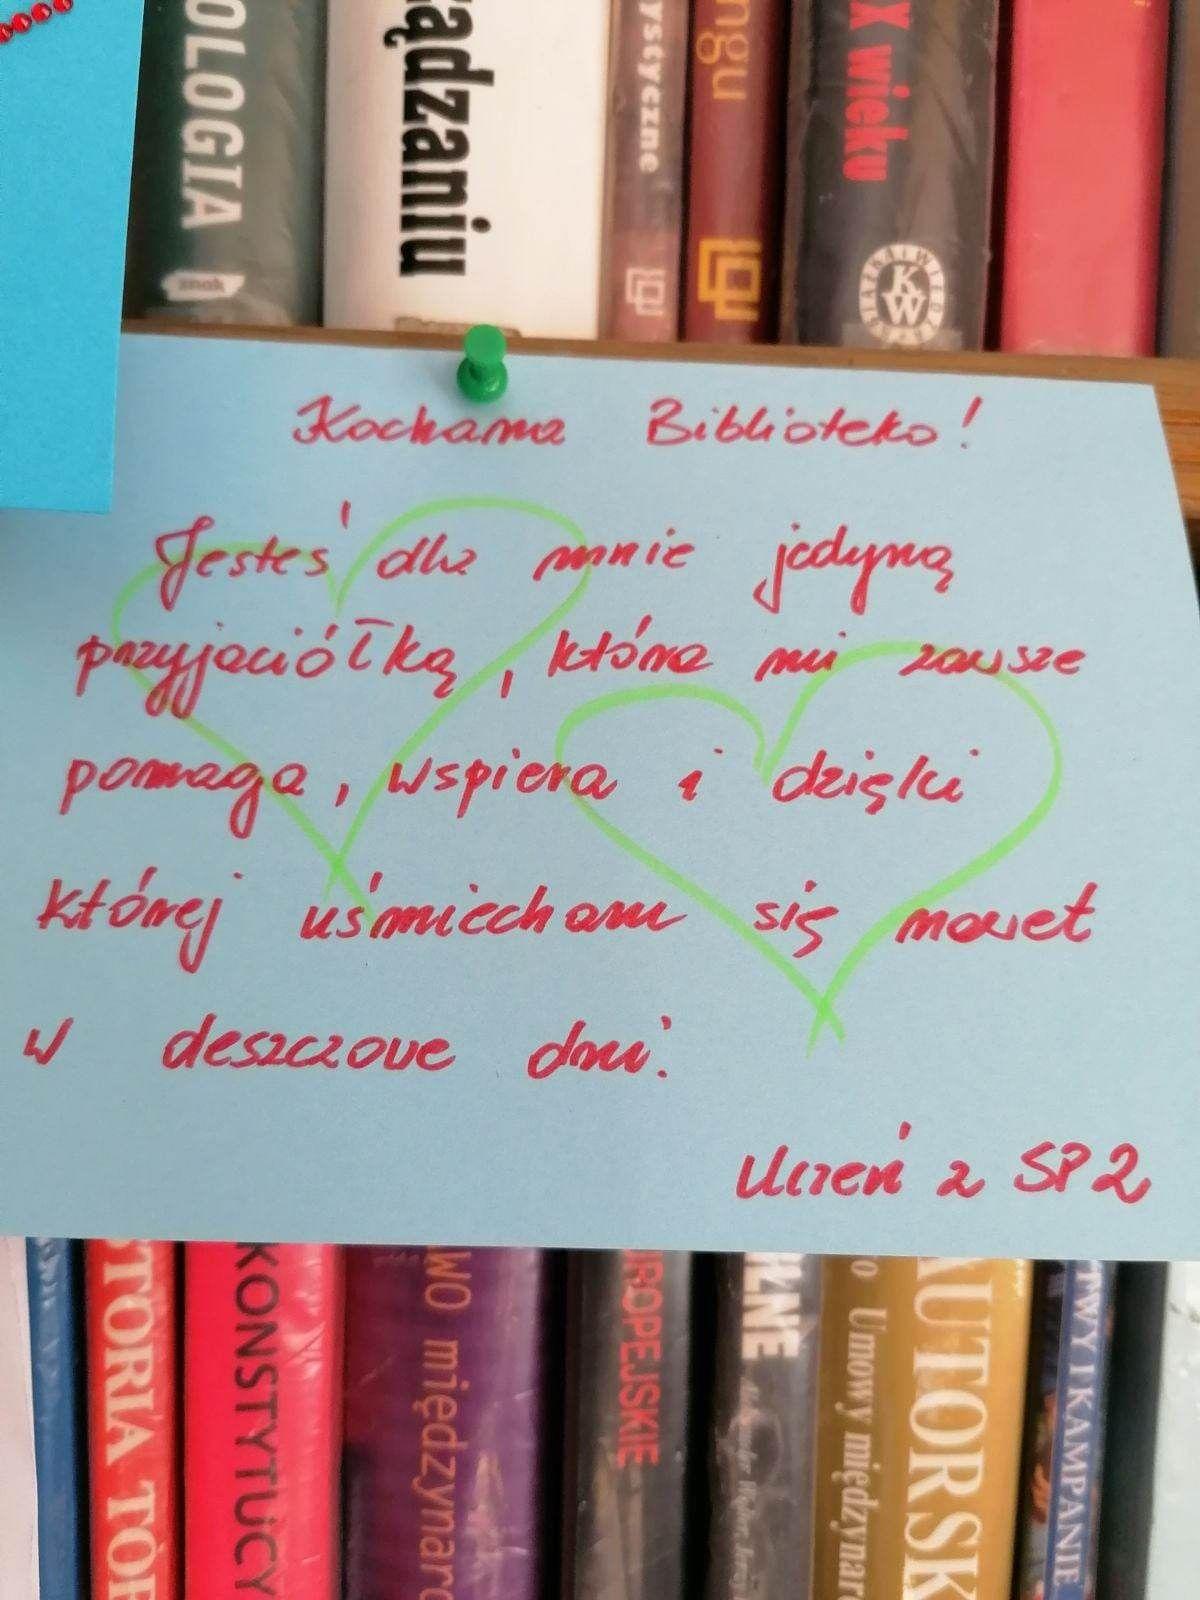 OLOGIA
znak
ądzaniu
ystyczne
ngu
X wieku
KW
Kochana Biblioteko!
Jesteś dla mnie jedyną
przyjaciółką, która mi zawsze
pomaga, wspiera i dzięki
której uśmiecham się nawet
w deszczowe dni.
Uczeń z SP2
STORIA TOR
KONSTYTUCY
WO międzynaro
UROPEJSKIE
LNE
o Umowy międzynar
AUTORSK
TWY I KAMPANIE